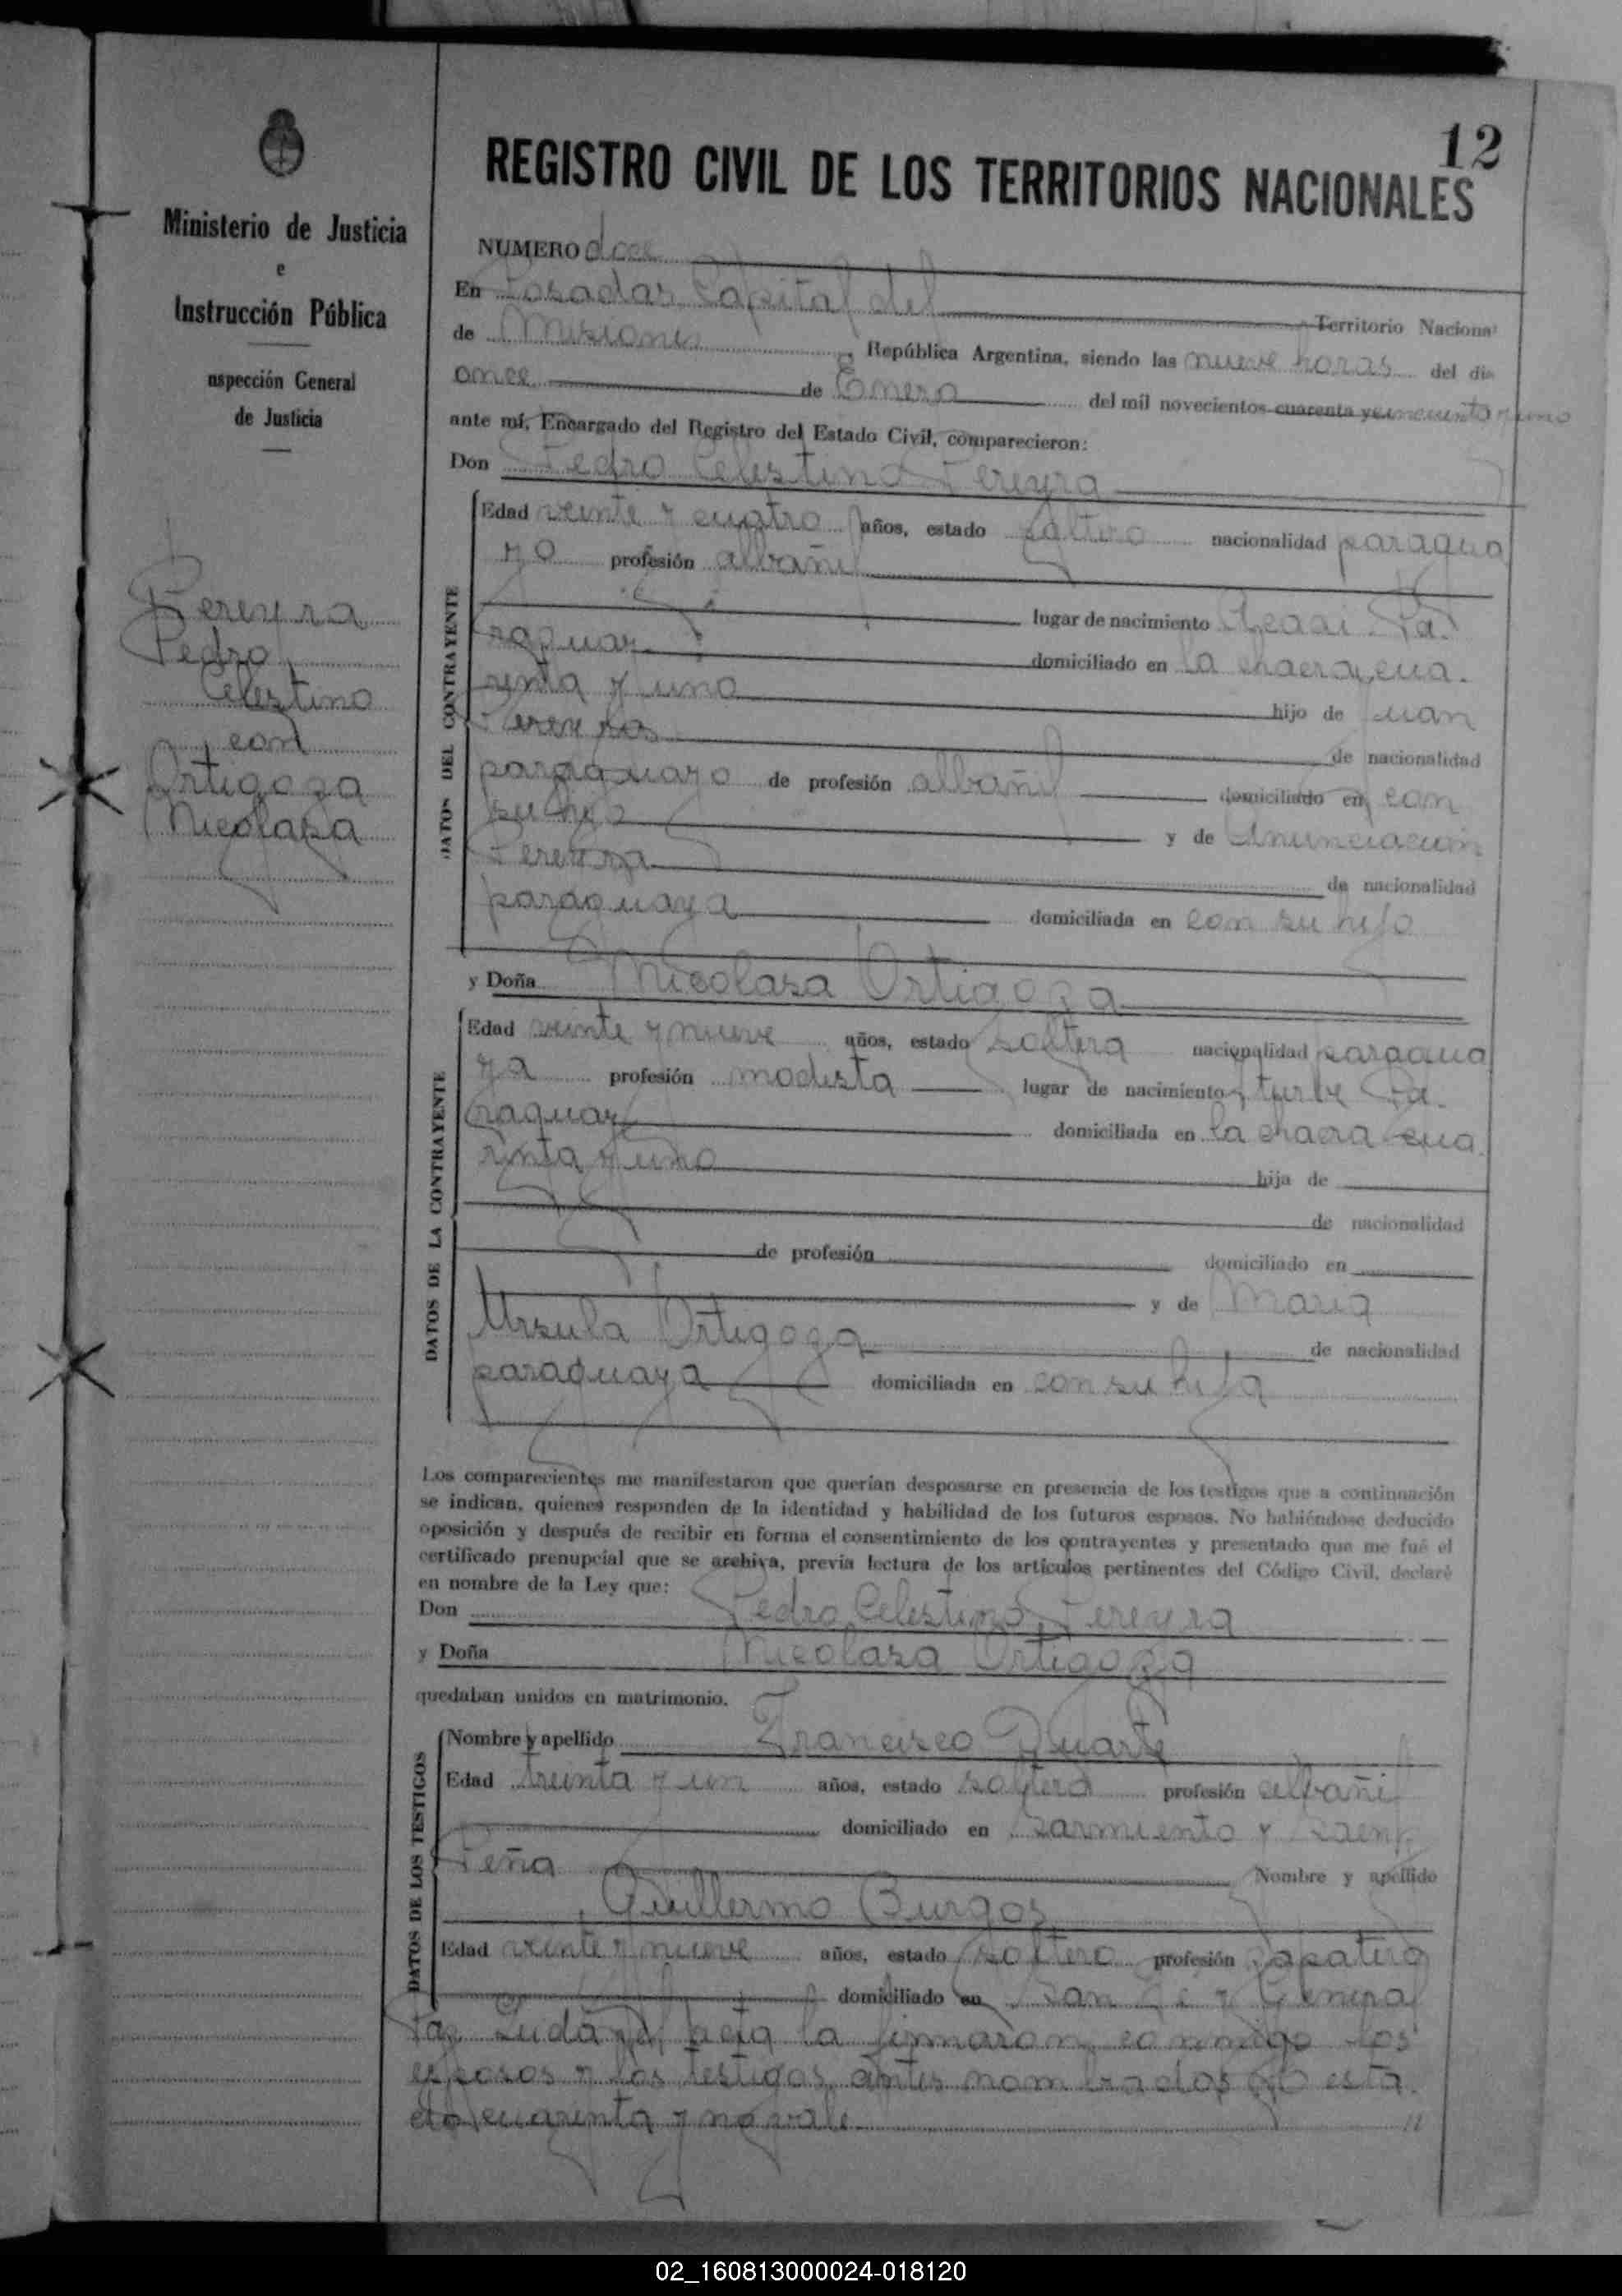 12
REGISTRO CIVIL DE LOS TERRITORIOS NACIONALES
Ministerio de Justicia
e
Instrucción Pública
nspección General
de Justicia
Pereyra
Pedro
Celestino
con
Ortigoza
Nicolasa
NUMERO doce
En Posadas Capital del Territorio Naciona
de Misiones, República Argentina, siendo las nueve horas del dia
once de Enero del mil novecientos cuarenta y cincuenta y uno
ante mí, Encargado del Registro del Estado Civil, comparecieron:
Don Pedro Celestino Pereyra
DATOS DEL CONTRAYENTE
Edad veinte y cuatro años, estado soltero nacionalidad paragua
yo profesión albañil
lugar de nacimiento Pa.
raguay domiciliado en la chacra cua.
renta y uno hijo de Juan
Pereyra de nacionalidad
paraguayo de profesión albañil domiciliado en con
su hijo y de Anunciación
Pereyra de nacionalidad
paraguaya domiciliada en con su hijo
y Doña Nicolasa Ortigoza
DATOS DE LA CONTRAYENTE
Edad veinte y nueve años, estado soltera nacionalidad paragua
ya profesión modista lugar de nacimiento Pa.
raguay domiciliada en la chacra cua.
renta y uno hija de
de nacionalidad
de profesión domiciliado en
y de Maria
Ursula Ortigoza de nacionalidad
paraguaya domiciliada en con su hija
Los comparecientes me manifestaron que querían desposarse en presencia de los testigos que a continuación
se indican, quienes responden de la identidad y habilidad de los futuros esposos. No habiéndose deducido
oposición y después de recibir en forma el consentimiento de los contrayentes y presentado que me fué el
certificado prenupcial que se archiva, previa lectura de los artículos pertinentes del Código Civil, declaré
en nombre de la Ley que:
Don Pedro Celestino Pereyra
y Doña Nicolasa Ortigoza
quedaban unidos en matrimonio.
DATOS DE LOS TESTIGOS
Nombre y apellido Francisco Duarte
Edad treinta y un años, estado soltero profesión albañil
domiciliado en Sarmiento y Saenz
Peña Nombre y apellido
Guillermo Burgos
Edad veinte y nueve años, estado soltero profesión zapatero
domiciliado en San Fé y General
Paz Leida el acta la firmaron conmigo los
esposos y los testigos antes nombrados esta
do cuarenta y no vale
02_160813000024-018120